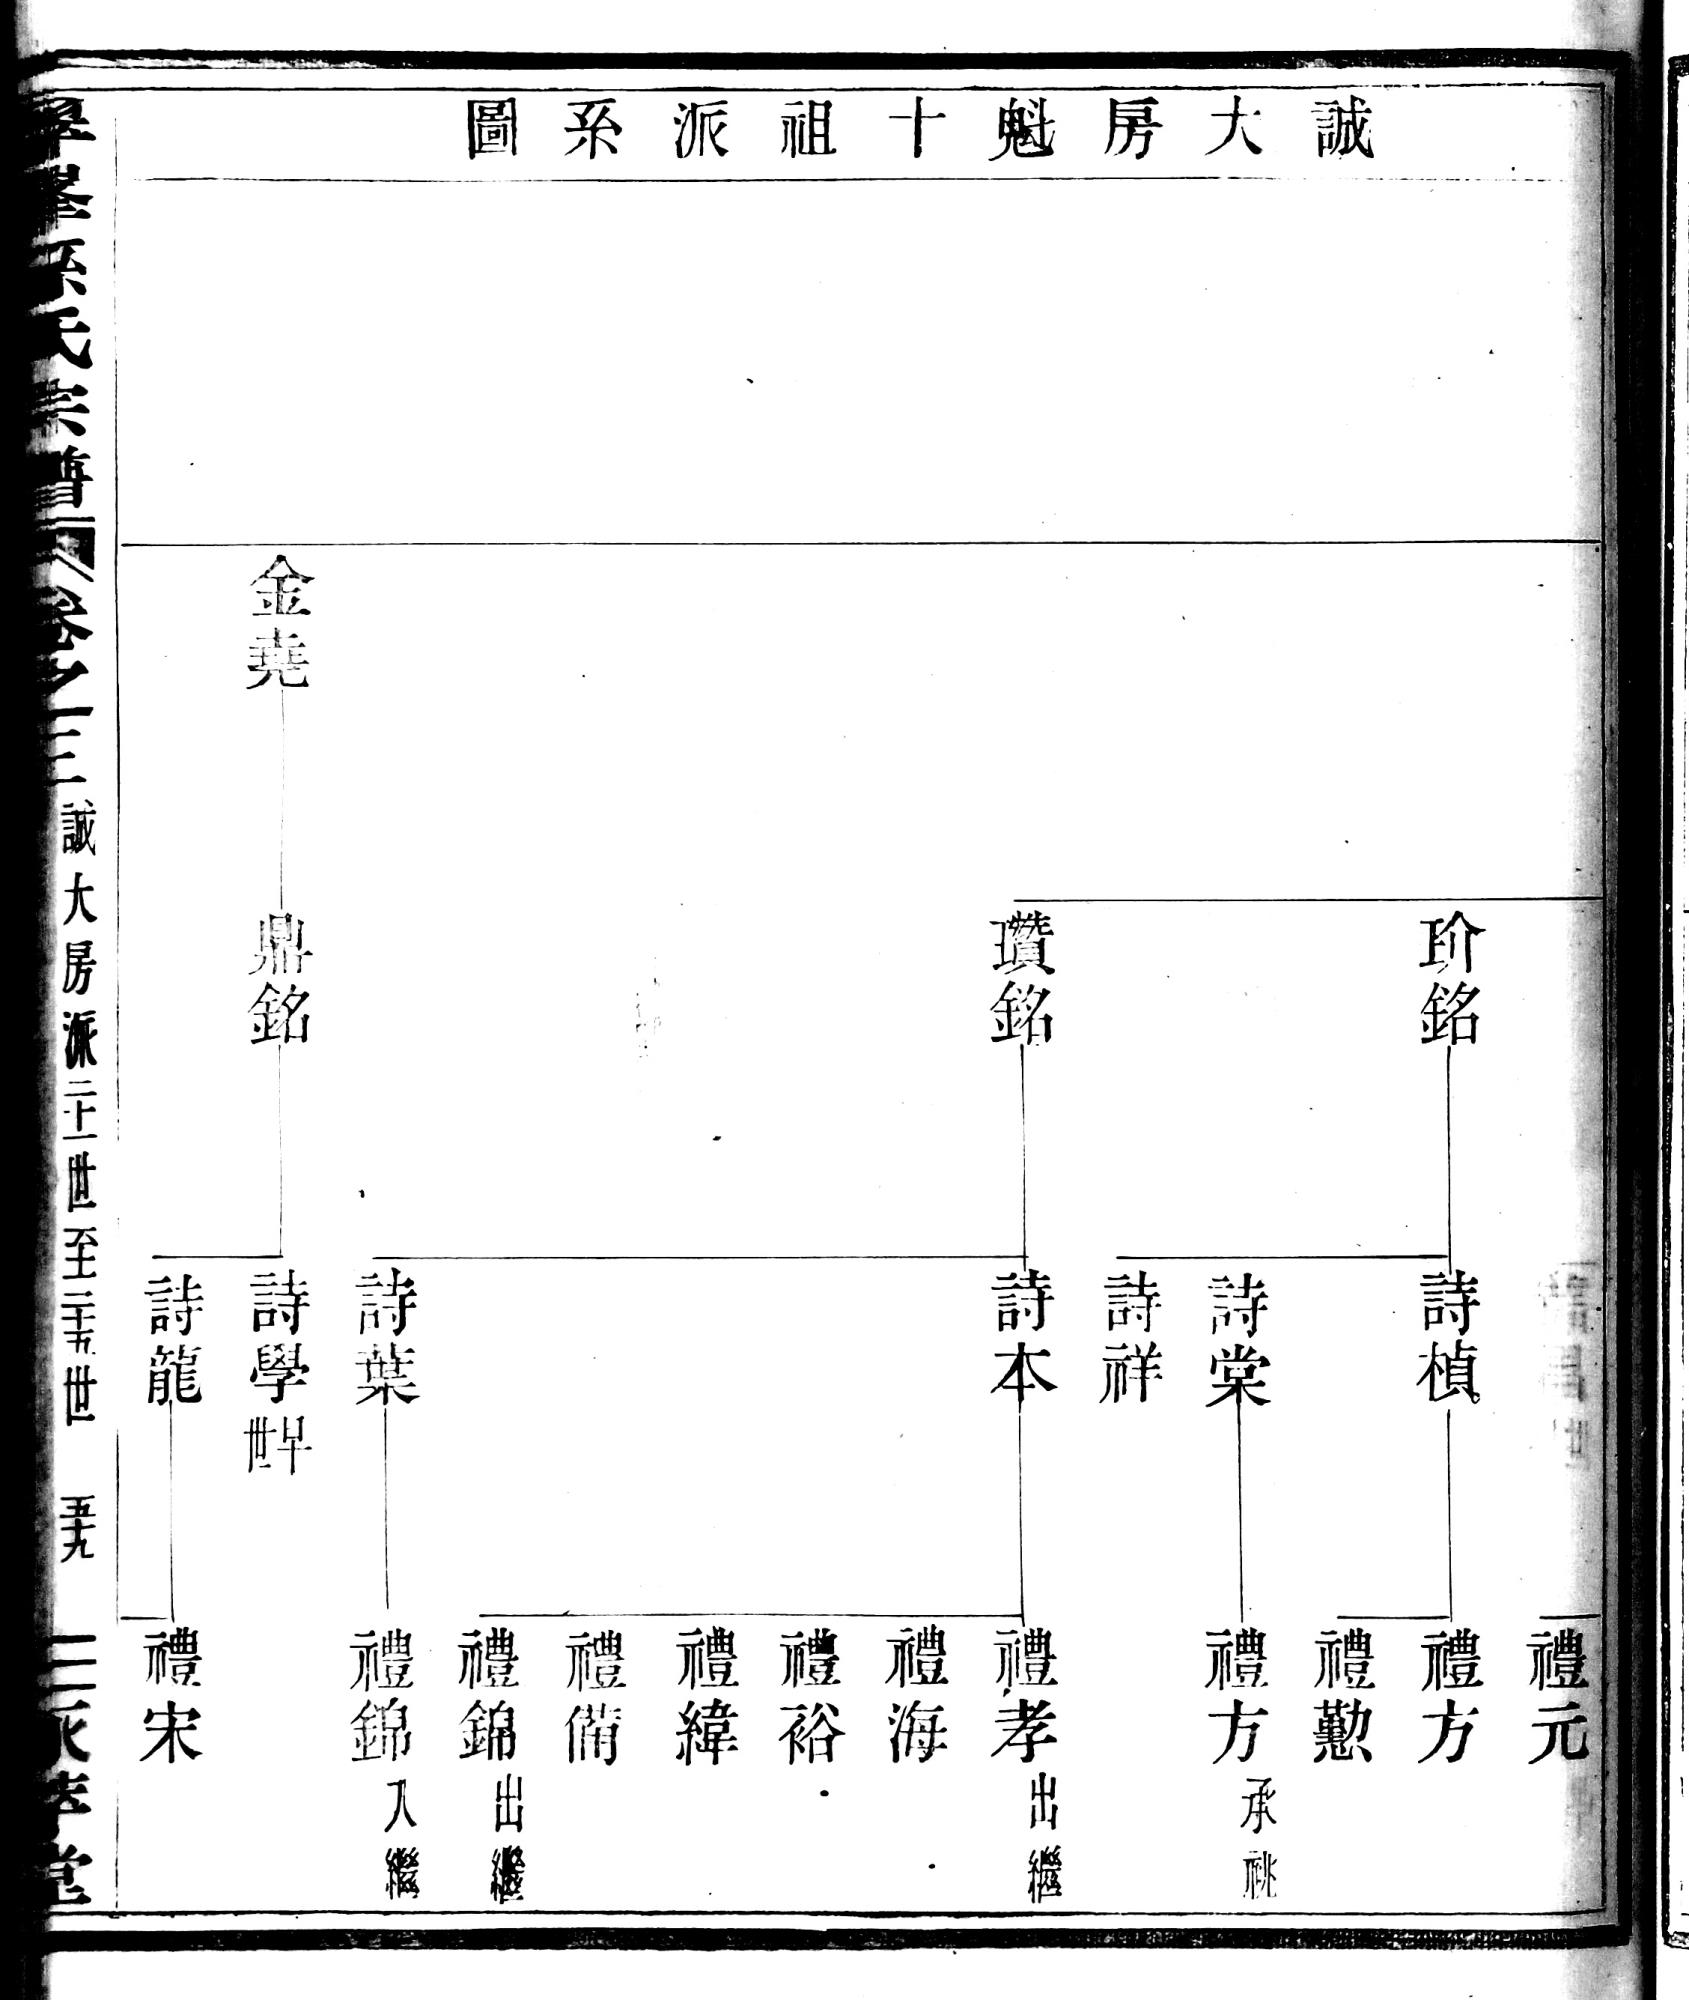 誠大房魁十祖派系圖
玠銘
瓚銘
金堯
鼎銘
詩楨
詩棠
詩祥
詩本
詩葉
詩學 早世
詩龍
禮元
禮方
禮懃
禮方 承祧
禮孝 出繼
禮海
禮裕
禮緯
禮備
禮錦 出繼
禮錦 入繼
禮宋
孫氏宗譜 卷之三 誠大房派二十一世至二十五世 五十九 堂